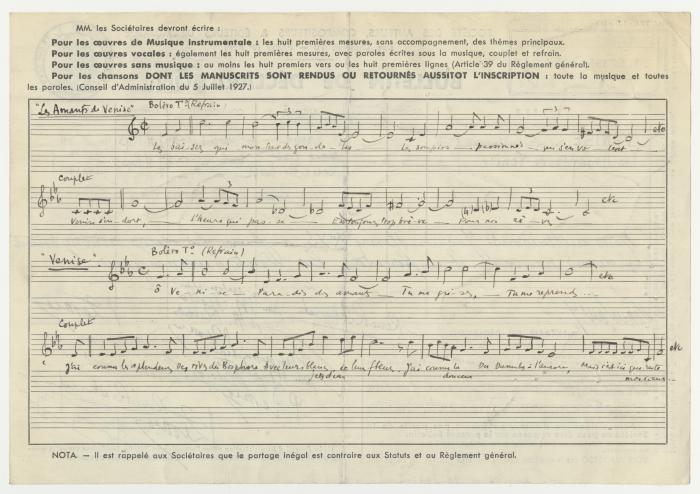 MM. les Sociétaires devront écrire :
Pour les œuvres de Musique instrumentale : les huit premières mesures, sans accompagnement, des thèmes principaux.
Pour les œuvres vocales : également les huit premières mesures, avec paroles écrites sous la musique, couplet et refrain.
Pour les œuvres sans musique : au moins les huit premiers vers ou les huit premières lignes (Article 39 du Règlement général).
Pour les chansons DONT LES MANUSCRITS SONT RENDUS OU RETOURNÉS AUSSITOT L'INSCRIPTION : toute la musique et toutes
les paroles. (Conseil d'Administration du 5 Juillet 1927.)
"Les Amants de Venise" Boléro To (Refrain)
3 3 etc
Les baisers que mon les gondoles Les soupirs passionnés qui s'envo lent
Couplet
3 3 etc
Venise s'en dort, l'heure qui passe Est toujours trop brève Pour nos rêves
"Venise" Boléro To (Refrain)
etc
Ô Ve - ni - se Para - dis des amants Tu me grises, Tu me reprends...
Couplet
etc
J'ai connu les splendeurs Des rives du Bosphore Avec leurs et leurs fleurs J'ai connu la Du Danube à l'aurore, Mais c'est ici que reste
jets d'eau douceur mon cœur...
NOTA. — Il est rappelé aux Sociétaires que le partage inégal est contraire aux Statuts et au Règlement général.